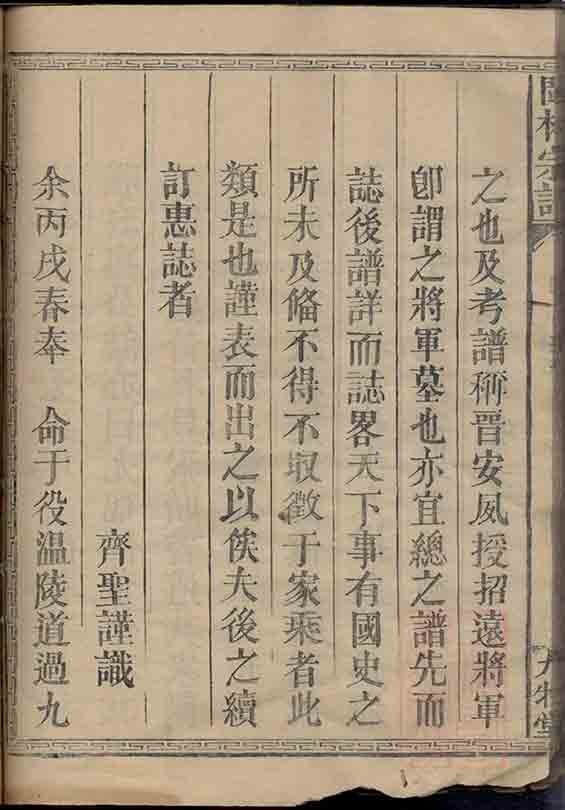 林宗譜
之也及考譜稱晉安風授招遠將軍
卽謂之將軍墓也亦宜總之譜先而
誌後譜詳而誌畧天下事有國史之
所未及俻不得不取徵于家乘者此
類是也謹表而出之以俟夫後之續
訂惠誌者
齊聖謹識
余丙戌春奉 命于役溫陵道過九
九牧堂